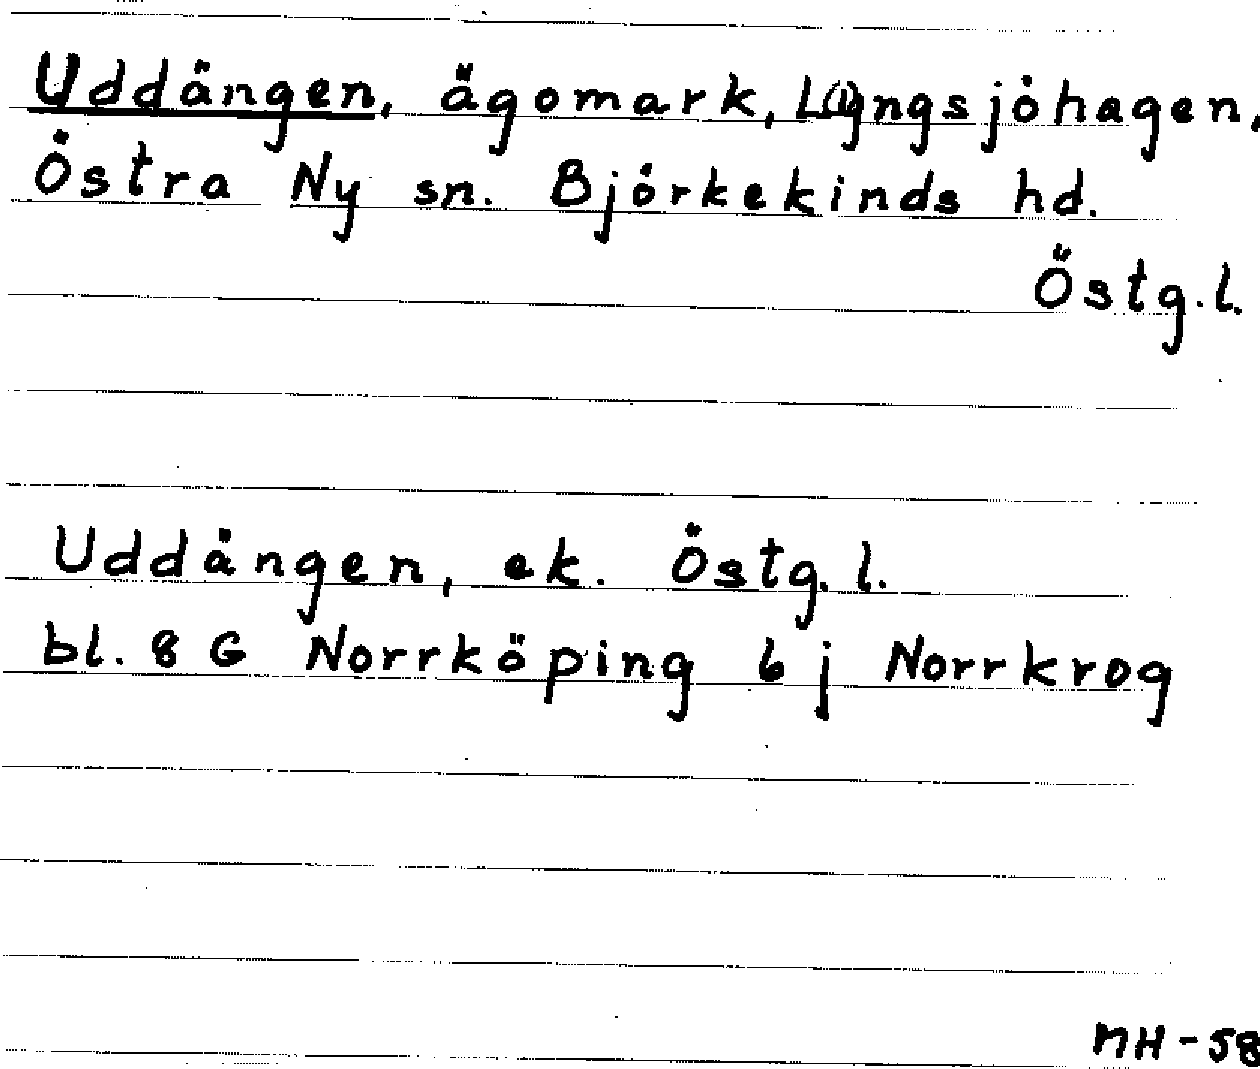 Uddängen, ägomark, Lyngsjöhagen,
Östra Ny sn. Björkekinds hd.
Östg. l.
Uddängen, ek. Östg. l.
bl. 8 G Norrköping 6 j Norrkrog
nH-58